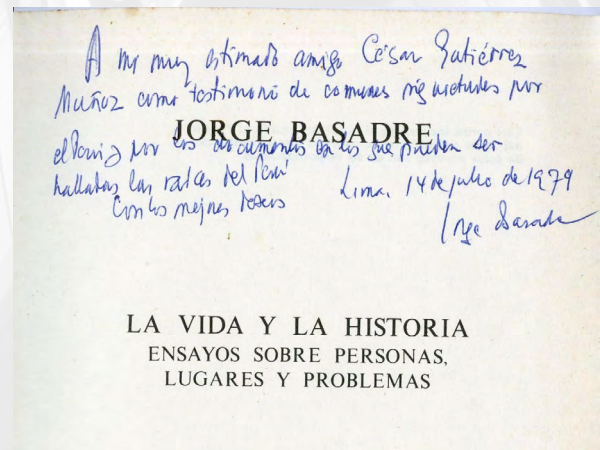 A mi muy estimado amigo César Gutiérrez
Muñoz como testimonio de comunes inquietudes por
JORGE BASADRE
el Perú y por los documentos en los que pueden ser
halladas las raíces del Perú
Lima, 14 de julio de 1979
Con los mejores deseos
Jorge Basadre
LA VIDA Y LA HISTORIA
ENSAYOS SOBRE PERSONAS,
LUGARES Y PROBLEMAS